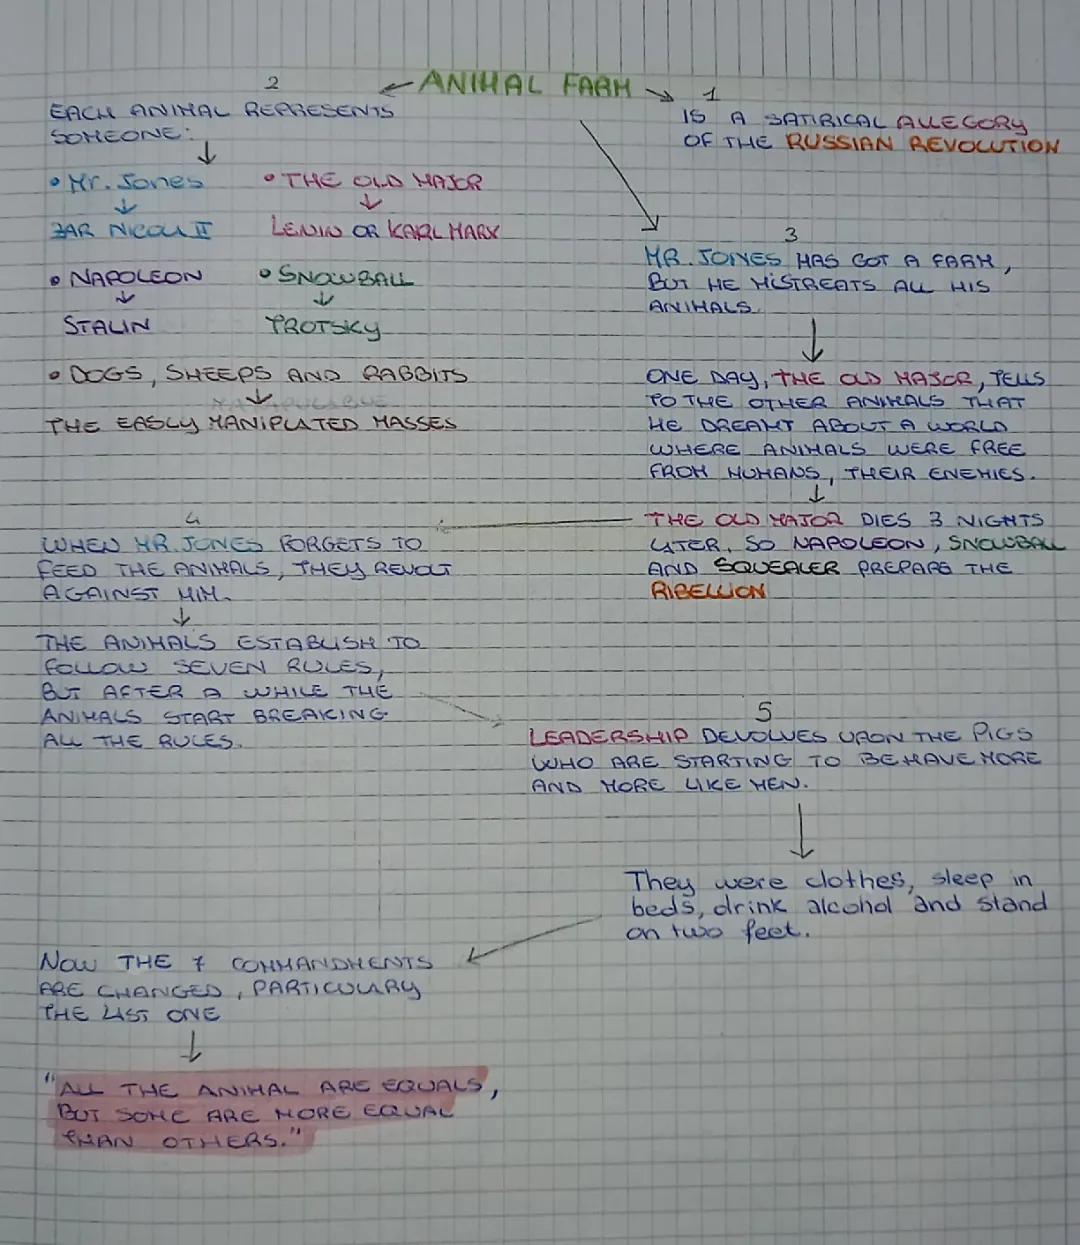 ANIMAL FARM
1
IS A SATIRICAL ALLEGORY
OF THE RUSSIAN REVOLUTION
2
EACH ANIMAL REPRESENTS
SOMEONE:
• Mr. Jones
ZAR NICOLI II
• THE OLD MAJOR
LENIN OR KARL MARX
• NAPOLEON
STALIN
• SNOWBALL
TROTSKY
• DOGS, SHEEPS AND RABBITS
THE EASLY MANIPLATED MASSES
3
MR. JONES HAS GOT A FARM,
BUT HE MISTREATS ALL HIS
ANIMALS.
ONE DAY, THE OLD MAJOR, TELLS
TO THE OTHER ANIMALS THAT
HE DREAMT ABOUT A WORLD
WHERE ANIMALS WERE FREE
FROM HUMANS, THEIR ENEMIES.
THE OLD MAJOR DIES 3 NIGHTS
LATER, SO NAPOLEON, SNOWBALL
AND SQUEALER PREPARE THE
RIBELLION
4
WHEN MR. JONES FORGETS TO
FEED THE ANIMALS, THEY REVOLT
AGAINST HIM.
THE ANIMALS ESTABLISH TO
FOLLOW SEVEN RULES,
BUT AFTER A WHILE THE
ANIMALS START BREAKING
ALL THE RULES.
5
LEADERSHIP DEVOLVES UPON THE PIGS
WHO ARE STARTING TO BEHAVE MORE
AND MORE LIKE MEN.
They were clothes, sleep in
beds, drink alcohol and stand
on two feet.
NOW THE 7 COMMANDMENTS
ARE CHANGED, PARTICULARY
THE LAST ONE
"ALL THE ANIMAL ARE EQUALS,
BUT SOME ARE MORE EQUAL
THAN OTHERS."